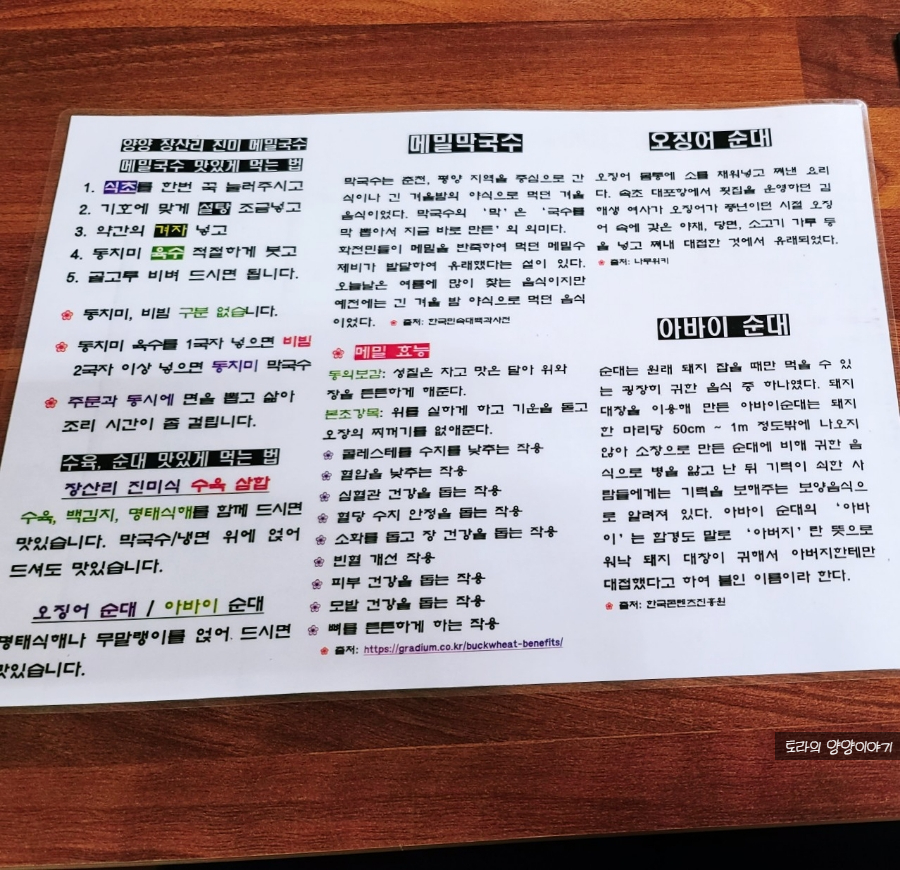 양양 장산리 진미 메밀국수
메밀국수 맛있게 먹는 법
1. 식초를 한번 꾹 눌러주시고
2. 기호에 맞게 설탕 조금넣고
3. 약간의 겨자 넣고
4. 동치미 육수 적절하게 붓고
5. 골고루 비벼 드시면 됩니다.
동치미, 비빔 구분 없습니다.
동치미 육수를 1국자 넣으면 비빔
2국자 이상 넣으면 동치미 막국수
주문과 동시에 면을 뽑고 삶아
조리 시간이 좀 걸립니다.
수육, 순대 맛있게 먹는 법
장산리 진미식 수육 삼합
수육, 백김치, 명태식해를 함께 드시면
맛있습니다. 막국수/냉면 위에 얹어
드셔도 맛있습니다.
오징어 순대 / 아바이 순대
명태식해나 무말랭이를 얹어 드시면
맛있습니다.
메밀막국수
막국수는 춘천, 평양 지역을 중심으로 간
식이나 긴 겨울밤의 야식으로 먹던 겨울
음식이었다. 막국수의 '막'은 '국수를
막 뽑아서 지금 바로 만든'의 의미다.
화전민들이 메밀을 반죽하여 먹던 메밀수
제비가 발달하여 유래했다는 설이 있다.
오늘날은 여름에 많이 찾는 음식이지만
예전에는 긴 겨울 밤 야식으로 먹던 음식
이었다. 출처: 한국민속대백과사전
메밀 효능
동의보감: 성질은 차고 맛은 달아 위와
장을 튼튼하게 해준다.
본초강목: 위를 실하게 하고 기운을 돋고
오장의 찌꺼기를 없애준다.
콜레스테롤 수치를 낮추는 작용
혈압을 낮추는 작용
심혈관 건강을 돕는 작용
혈당 수치 안정을 돕는 작용
소화를 돕고 장 건강을 돕는 작용
빈혈 개선 작용
피부 건강을 돕는 작용
모발 건강을 돕는 작용
뼈를 튼튼하게 하는 작용
출처: https://gradium.co.kr/buckwheat-benefits/
오징어 순대
오징어 몸통에 소를 채워넣고 쪄낸 요리
다. 속초 대포항에서 횟집을 운영하던 김
해생 여사가 오징어가 풍년이던 시절 오징
어 속에 갖은 야채, 당면, 소고기 가루 등
을 넣고 쪄내 대접한 것에서 유래되었다.
출처: 나무위키
아바이 순대
순대는 원래 돼지 잡을 때만 먹을 수 있
는 굉장히 귀한 음식 중 하나였다. 돼지
대창을 이용해 만든 아바이순대는 돼지
한 마리당 50cm ~ 1m 정도밖에 나오지
않아 소창으로 만든 순대에 비해 귀한 음
식으로 병을 앓고 난 뒤 기력이 쇠한 사
람들에게는 기력을 보해주는 보양음식으
로 알려져 있다. 아바이 순대의 '아바
이'는 함경도 말로 '아버지'란 뜻으로
워낙 돼지 대창이 귀해서 아버지한테만
대접했다고 하여 붙인 이름이라 한다.
출처: 한국콘텐츠진흥원
토라의 양양이야기